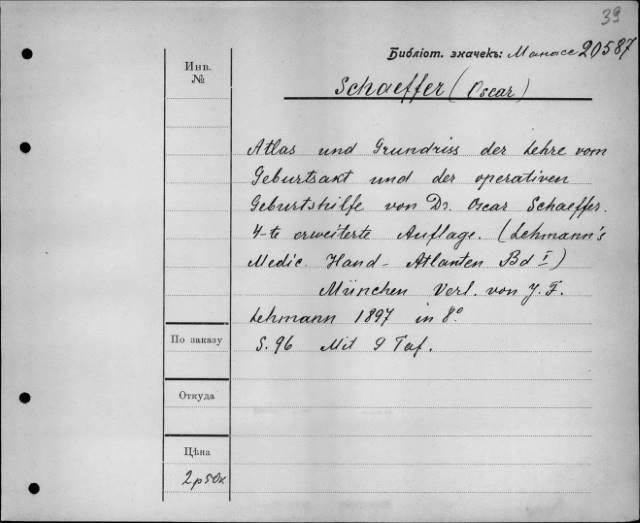 39
Библіот. значекъ: Манасе 20587
Инв.
№
Schaeffer (Oscar)
Atlas und Grundriss der Lehre vom
Geburtsakt und der operativen
Geburtshilfe von Dr. Oscar Schaeffer.
4-te erweiterte Auflage. (Lehmann's
Medic. Hand-Atlanten Bd I)
München Verl. von J. F.
Lehmann 1897 in 8º
По заказу
S. 96 Mit 9 Taf.
Откуда
Цѣна
2р50к